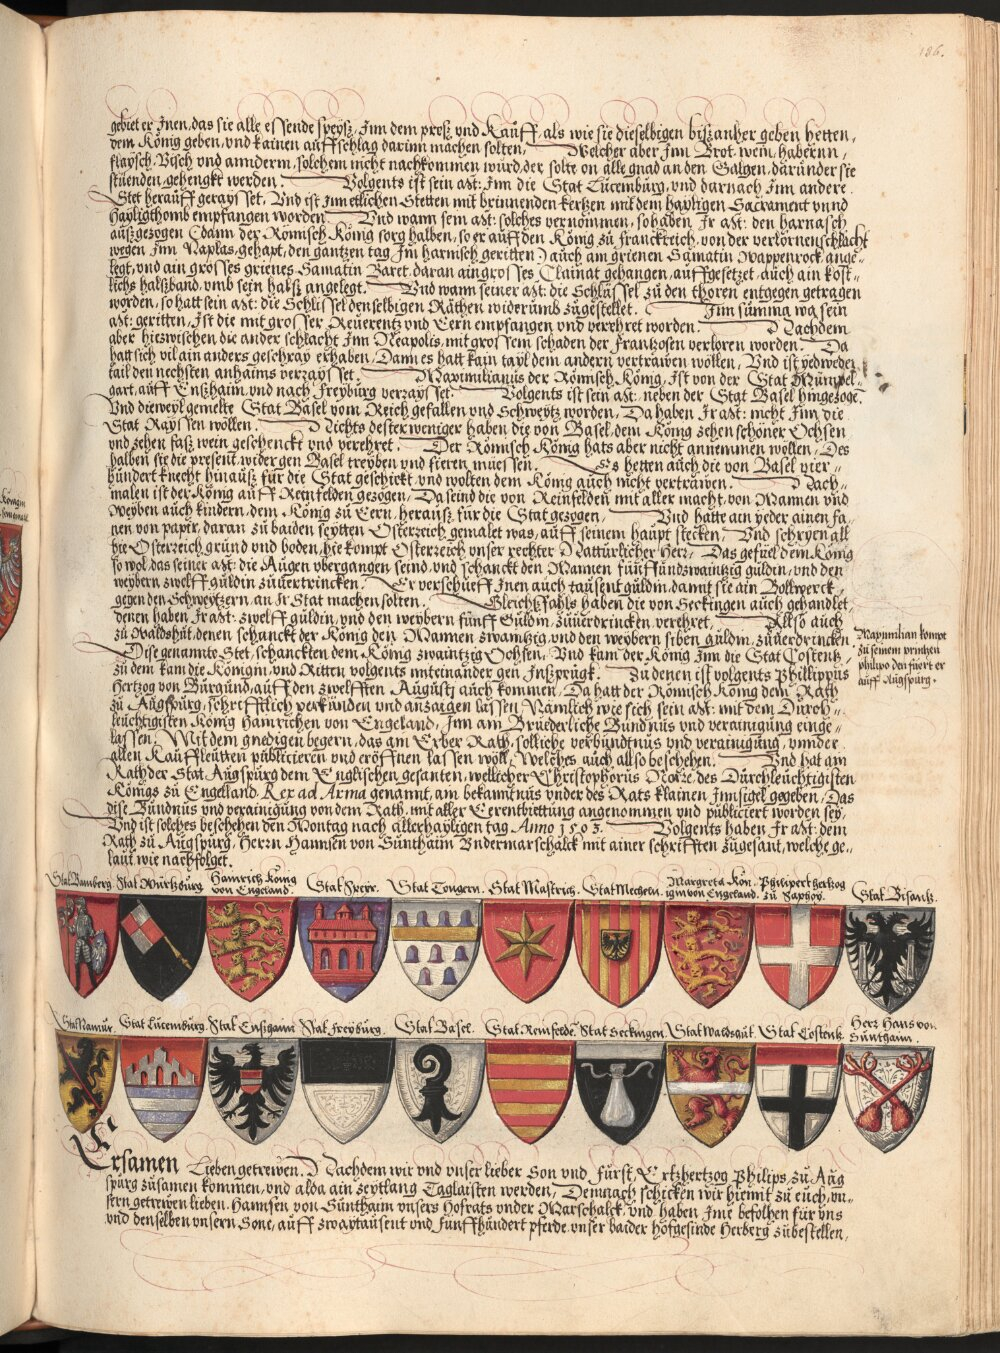 186.
gebiet er Inen, das sie alle essende speysz, Inn dem prosz vnd Kauff, als wie sie dieselbigen biszanher geben hetten,
dem König geben, vnd kainen auffschlag darinn machen solten, Welcher aber Inn Brot, wein, habernn,
flaysch, Visch vnd annderm, solchem nicht nachkommen würd, der solte on alle gnad an den Galgen, darunder sie
stüenden, gehengkt werden. Volgents ist sein Mt: Inn die Stat Lücembürg, vnd darnach Inn andere
Stet herauff geraysset, Vnd ist Inn etlichen Stetten mit brinnenden kertzen mit dem hayligen Sacrament vnnd
hayligthomb empfangen worden Vnd wann sein Mt: solches vernommen, so haben Ir Mt: den harnasch
auszgezogen (dann der Römisch König sorg halben, so er auff den König zu Franckreich, von der verlornen schlacht
wegen Inn Naplas, gehapt, den gantzen tag Im harnisch geritten) auch ain grienen Samatin Wappenrock ange-
legt, vnd ain grosses grienes Samatin Baret, daran ain grosses Clainat gehangen, auffgesetzet, auch ain köst-
lichs halszband, vmb sein halsz angelegt. Vnd wann seiner Mt: die Schlüssel zu den thoren entgegen getragen
worden, so hatt sein Mt: die Schlissel denselbigen Räthen widerumb zugestellet. Inn summa wa sein
Mt: geritten, Ist die mit grosser Reuerentz vnd Eern empfangen vnd verehret worden. Nachdem
aber hiezwischen die ander schlacht Inn Neapolis, mit grossem schaden der Frantzosen verloren worden. Da
hatt sich vil ain anders geschray erhaben, Dann es hatt kain tayl dem andern vertrawen wöllen, Vnd ist yedweder
tail den nechsten anhaims verraysset. Maximilianus der Römisch König, Ist von der Stat Mümpel-
gart, auff Enszhaim, vnd nach Freyburg verraysset. Volgents ist sein Mt: neben der Stat Basel hingezogen.
Vnd dieweyl gemelte Stat Basel vom Reich gefallen vnd Schweytz worden, Da haben Ir Mt: nicht Inn die
Stat Rayssen wöllen. Nichts dester weniger haben die von Basel, dem König zehen schöner Ochsen
vnd zehen fasz wein geschenckt vnd verehret. Der Römisch König hats aber nicht annemmen wöllen, Des
halben sie die present, wider gen Basel treyben vnd fieren muessen. Es hetten auch die von Basel vier-
hundert knecht hinausz für die Stat geschickt, vnd wolten dem König auch nicht vertrawen. Nach-
malen ist der König auff Reinfelden gezogen, Da seind die von Reinfelden mit aller macht, von Mannen vnd
Weyben auch kindern, dem König zu Eern, herausz für die Stat gezogen, Vnd hatte ain yeder ainen fa-
nen von papir, daran zu baiden seytten Österreich gemalet was, auff seinem haupt stecken, Vnd schryen all
hie Österreich grund vnd boden, hie kompt Österreich vnser rechter Natturlicher Herr, Das gefiel dem König
so wol, das seiner Mt: die Augen vbergangen seind, vnd schanckt den Mannen fünffundzwaintzig guldin, vnd den
weybern zwelff guldin zuuertrincken. Er verschueff Inen auch tausent guldin, damit sie ain Bollwerck,
gegen den Schweytzern, an Ir Stat machen solten. Gleichsfahls haben die von Seckingen auch gehandlet,
denen haben Ir Mt: zwelff guldin, vnd den weybern fünff Guldin, zuuerdrincken, verehret, Also auch
zu Waldshut, denen schanckt der König den Mannen zwaintzig, vnd den weybern siben guldin, zuuerdrincken
Dise genannte Stet, schanckten dem König zwaintzig Ochsen, Vnd kam der König Inn die Stat Costentz,
zu dem kam die Königin, vnd Ritten volgents miteinander gen Inszprugk. Zu denen ist volgents Phillippus
Hertzog von Burgund, auff den zwelfften Augusti auch kommen, Da hatt der Römisch König dem Rath
zu Augspurg, schrifftlich verkünden vnd anzaigen lassen Nämlich wie sich sein Mt: mit dem Durch-
leuchtigisten König Hainrichen von Engeland, Inn ain Brüederliche Bündnus vnd verainigung einge-
lassen, Mit dem gnedigen begern, das ain Erber Rath, solliche verbündtnus vnd verainigung, vnnder
allen Kauffleutten publicieren vnd eröffnen lassen wöll, Welches auch also beschehen. Vnd hat ain
Rath der Stat Augspurg dem Englischen gesanten, wellicher Christophorus Notre, des Durchleuchtigisten
Königs zu Engelland Rex ad Arma genannt, ain bekantnus vnder des Rats klainen Innsigel gegeben, Das
dise Bündnus vnd verainigung von dem Rath, mit aller Eerentbiettung angenommen vnd publiciert worden sey,
Vnd ist solches beschehen den Montag nach allerhayligen tag Anno 1503. Volgents haben Ir Mt: dem
Rath zu Augspurg, Herrn Hannsen von Sünthaim Vndermarschalck mit ainer schrifften zugesant, welche ge-
laut wie nachfolget.
Maximilian kompt
zu seinem printzen
philipo den fuert er
auff Augspurg.
Stat Bamberg. Stat Würtzburg Hainrich König von Engeland. Stat Speyr. Stat Tongern. Stat Mastrich. Stat Mecheln. Margreta Kön. igin von Engeland. Philipert hertzog zu Saphoy. Stat Bisantz.
Stat Namur. Stat Lücemburg. Stat Ensißhaim Stat Freyburg. Stat Basel. Stat Reinfelde. Stat Seckingen. Stat Waldshut. Stat Costentz. Herr Hans von Sünthaim.
Ersamen Lieben getrewen. Nachdem wir vnd vnser lieber Son vnd Fürst, Ertzhertzog Philips zu Aug
spurg zusamen kommen, vnd alda ain zeytlang Taglaisten werden, Demnach schicken wir hiemit zu euch, vn-
sern getrewen lieben. Hannsen von Sünthaim vnsers Hofrats vnder Marschalck, vnd haben Ime befolhen für vns
vnd denselben vnsern Sone, auff zwaytausent vnd funffhundert pferde, vnser baider hofgesinde Herberg zubestellen,
Königin